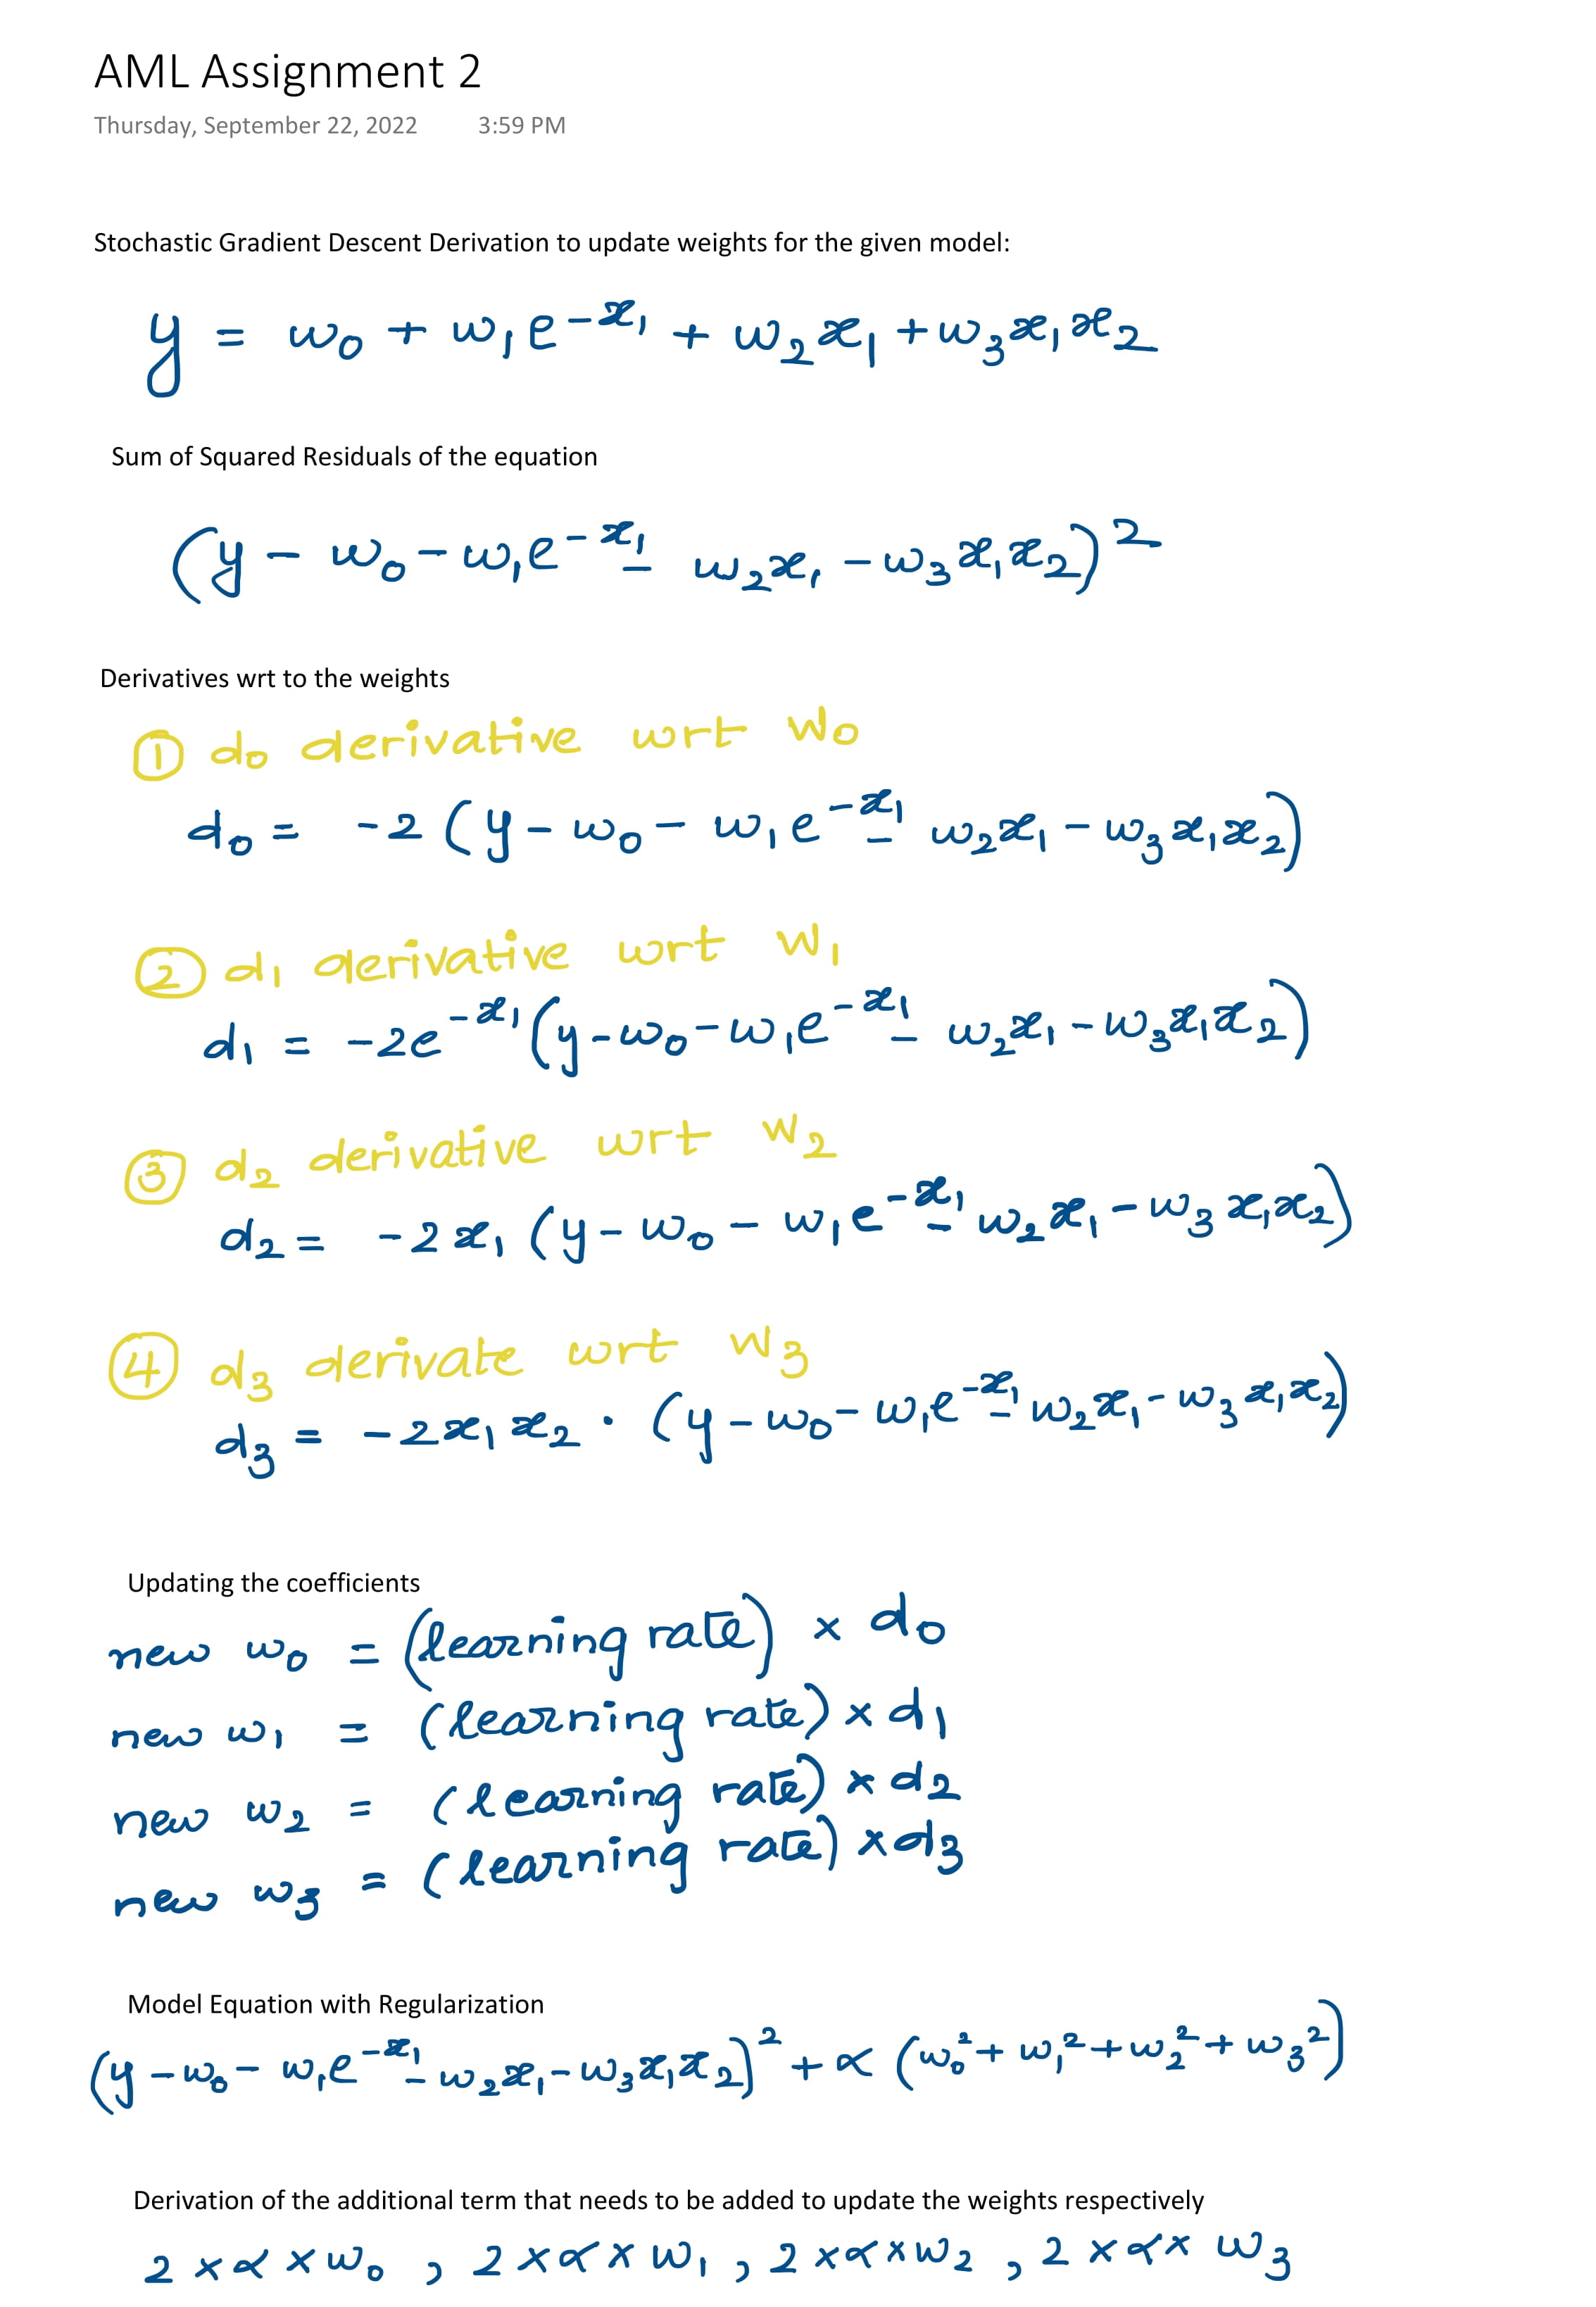 AML Assignment 2
Thursday, September 22, 2022 3:59 PM
Stochastic Gradient Descent Derivation to update weights for the given model:
y = w₀ + w₁e^(-x₁) + w₂x₁ + w₃x₁x₂
Sum of Squared Residuals of the equation
(y - w₀ - w₁e^(-x₁) - w₂x₁ - w₃x₁x₂)²
Derivatives wrt to the weights
① d₀ derivative wrt w₀
d₀ = -2 (y - w₀ - w₁e^(-x₁) - w₂x₁ - w₃x₁x₂)
② d₁ derivative wrt w₁
d₁ = -2e^(-x₁) (y - w₀ - w₁e^(-x₁) - w₂x₁ - w₃x₁x₂)
③ d₂ derivative wrt w₂
d₂ = -2x₁ (y - w₀ - w₁e^(-x₁) - w₂x₁ - w₃x₁x₂)
④ d₃ derivate wrt w₃
d₃ = -2x₁x₂ · (y - w₀ - w₁e^(-x₁) - w₂x₁ - w₃x₁x₂)
Updating the coefficients
new w₀ = (learning rate) × d₀
new w₁ = (learning rate) × d₁
new w₂ = (learning rate) × d₂
new w₃ = (learning rate) × d₃
Model Equation with Regularization
(y - w₀ - w₁e^(-x₁) - w₂x₁ - w₃x₁x₂)² + α (w₀² + w₁² + w₂² + w₃²)
Derivation of the additional term that needs to be added to update the weights respectively
2 × α × w₀ , 2 × α × w₁ , 2 × α × w₂ , 2 × α × w₃